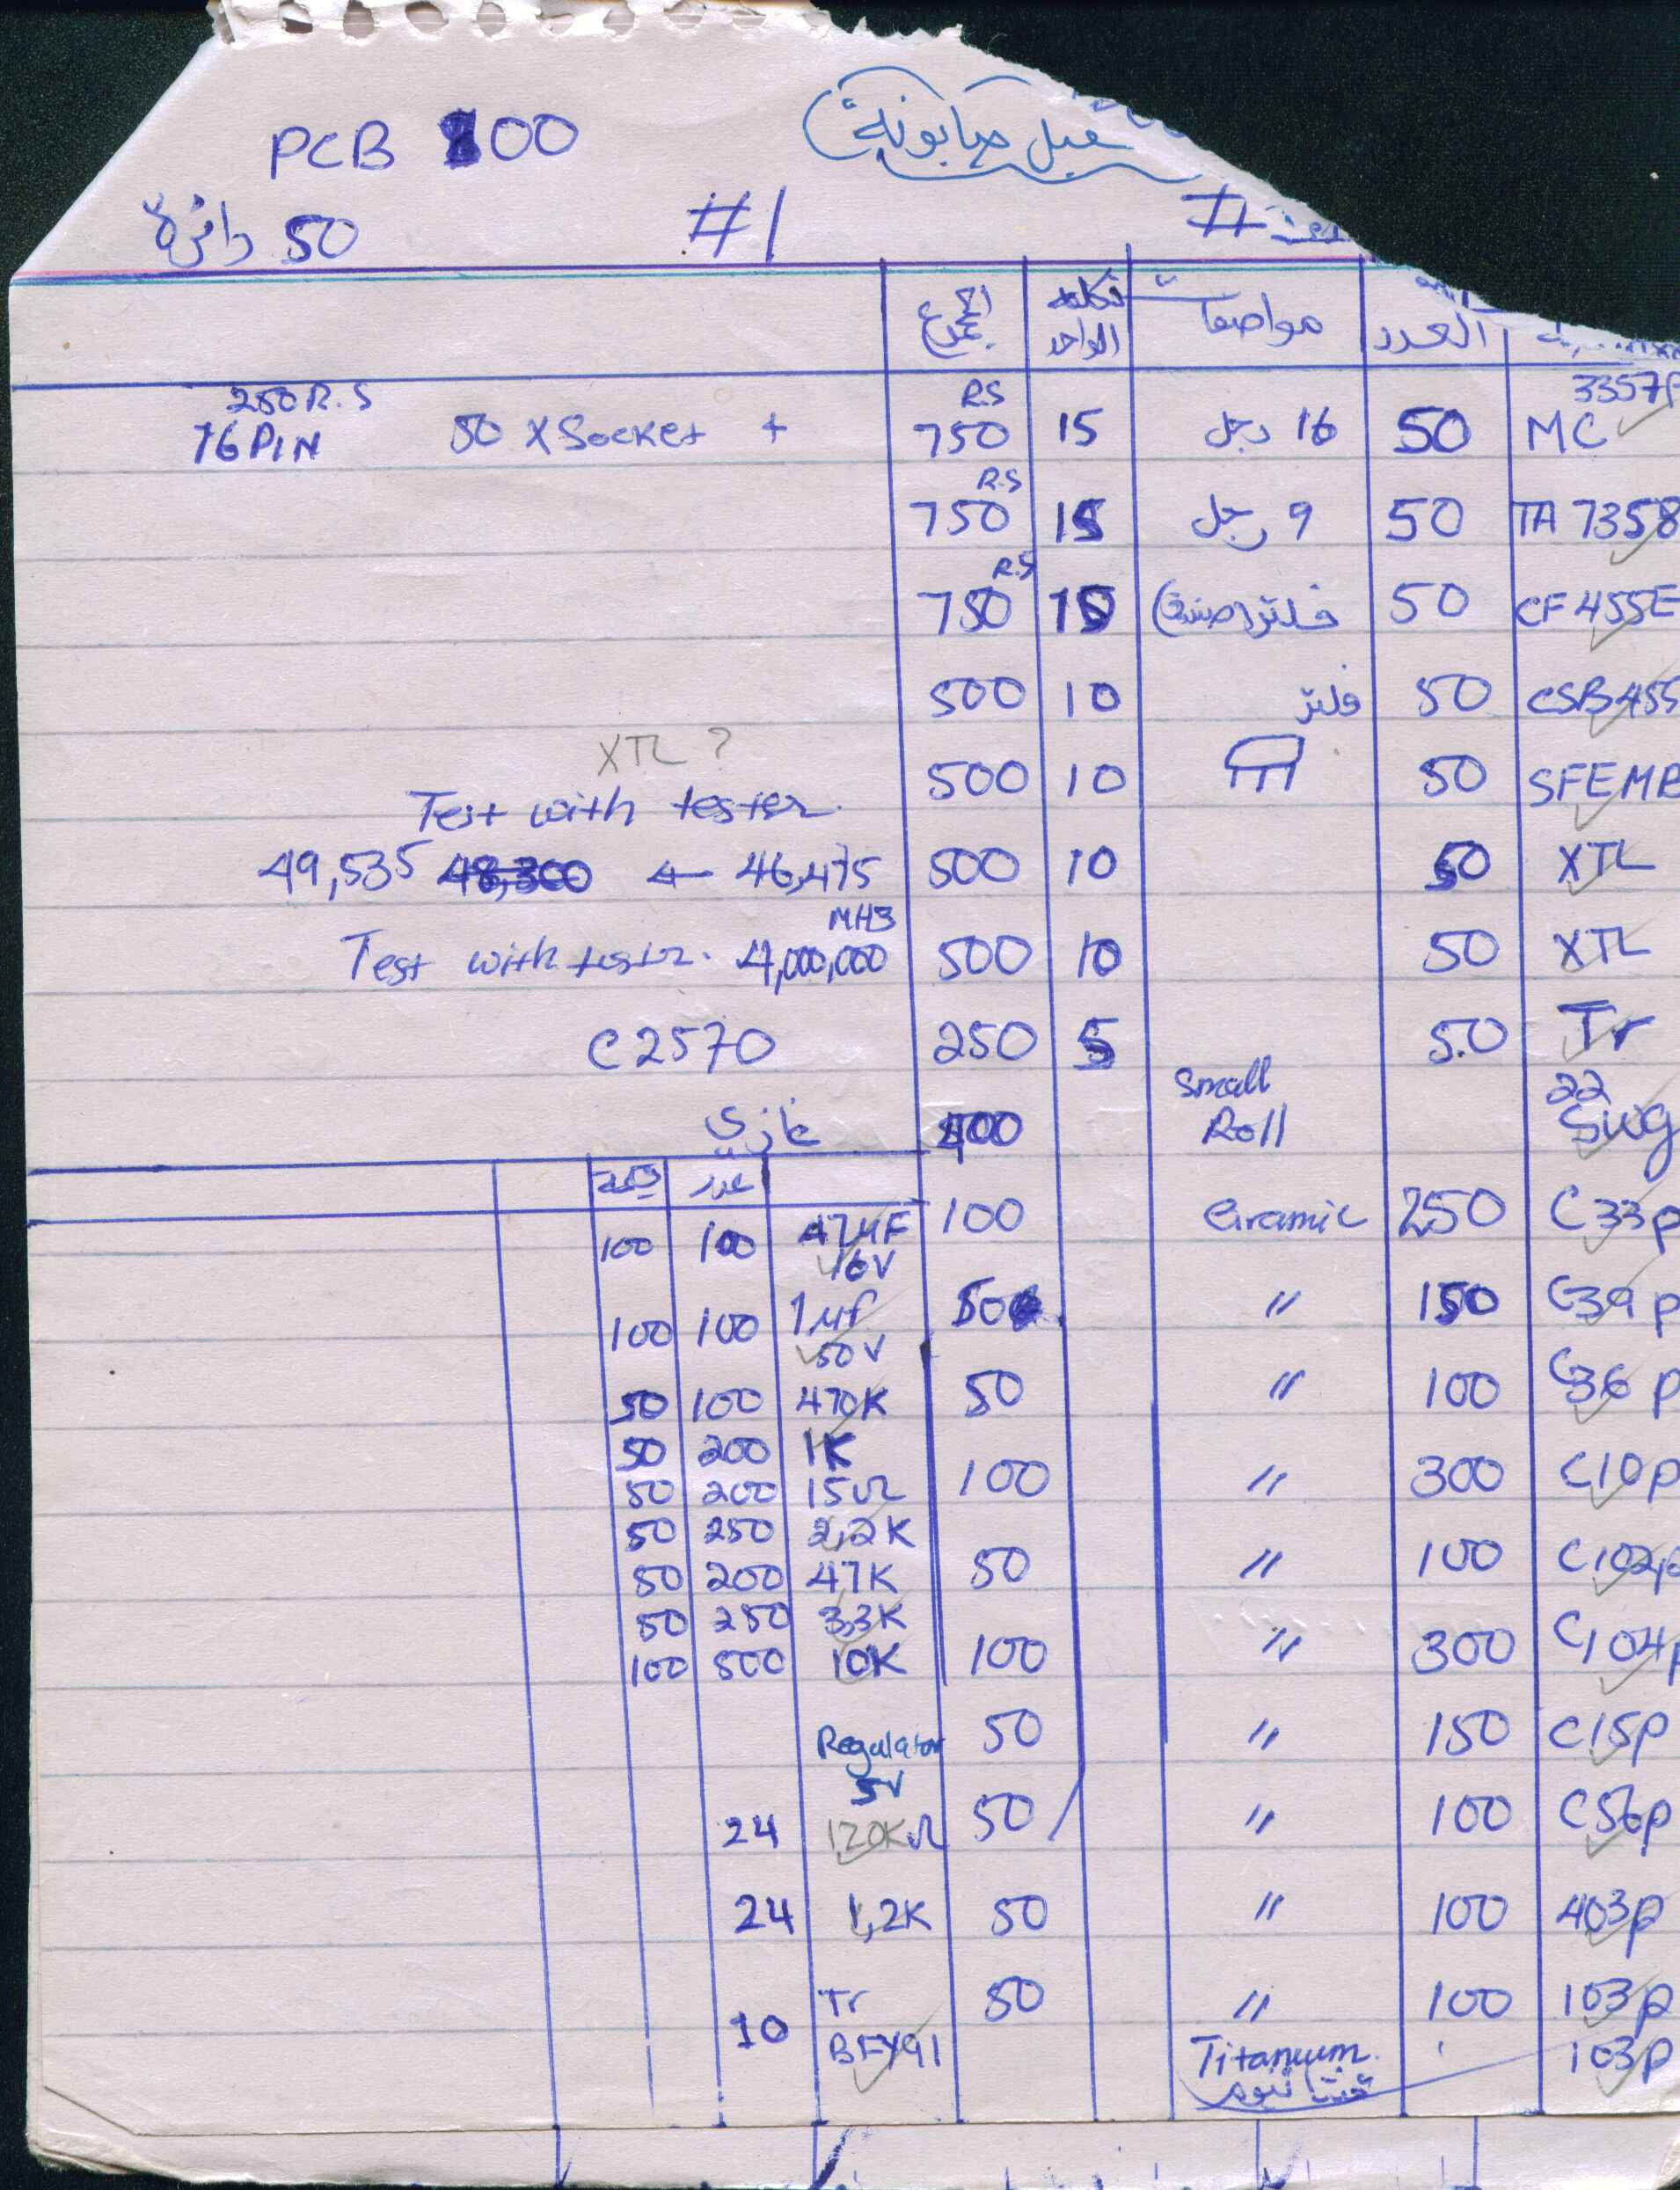 PCB 100
قبل صابونة
50 دائرة
#1
#
العدد مواصفات تكلفة الواحد المجموع
3357P
MC 50 16 رجل 15 750 R.S + 50 X Socket 16 PIN 250 R.S
TA 7358 50 9 رجل 15 750 R.S
CF 455E 50 فلتر 15 750 R.S
CSB 455 50 فلتر 10 500
SFEMP 50 10 500
XTL ?
Test with tester.
XTL 50 10 500 46,475 ← 48,300 49,535
XTL 50 10 500 4,000,000 MHz Test with tester.
Tr 50 5 250 C2570
22 Swg Small Roll غازي
عدد قيمة
C 33p 250 Ceramic 100
47µF 16V 100 100
C39 p 150 〃 50
1µf 50V 100 100
C36 p 100 〃 50
470K 100 50
1K 200 50
C10p 300 〃 100
15Ω 200 50
2,2K 250 50
C102p 100 〃 50
47K 200 50
3,3K 250 50
C104p 300 〃 100
10K 500 100
C15p 150 〃 50
Regulator 5V
C56p 100 〃 50
120KΩ 24
403p 100 〃 50
1,2K 24
103p 100 〃 50
Tr BFY91 10
103p Titanuum.